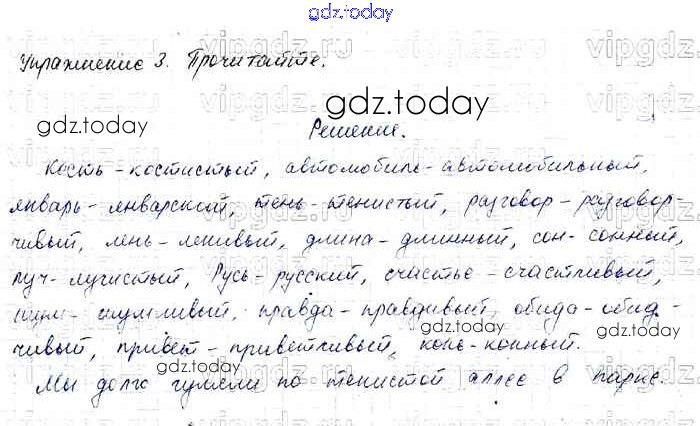 gdz.today
Упражнение 3. Прочитайте.
gdz.today
gdz.today
Решение.
Кость - костистый, автомобиль - автомобильный,
январь - январский, тень - тенистый, разговор - разговор-
чивый, лень - ленивый, длина - длинный, сон - сонный,
луч - лучистый, Русь - русский, счастье - счастливый,
шум - шумливый, правда - правдивый, обида - обид-
gdz.today
gdz.today
чивый, привет - приветливый, конь - конный.
Мы долго гуляли по тенистой аллее в парке.